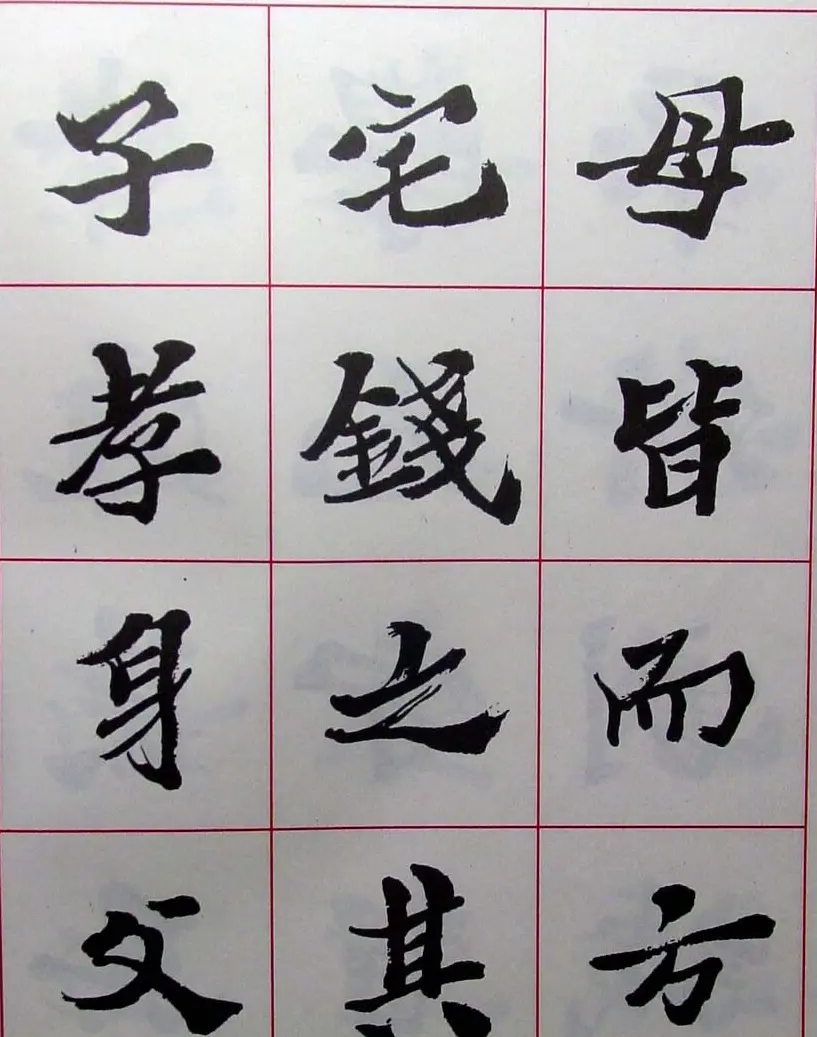 母皆而方
宅錢之其
子孝身父